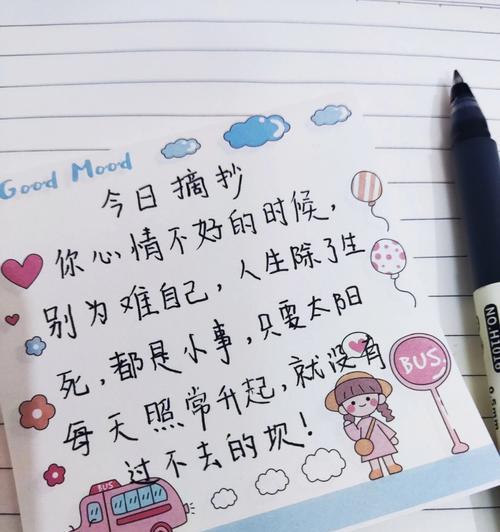 Good Mood
今日摘抄
你心情不好的时候，
别为难自己，人生除了生
死，都是小事，只要太阳
每天照常升起，就没有
过不去的坎！
BUS
BUS